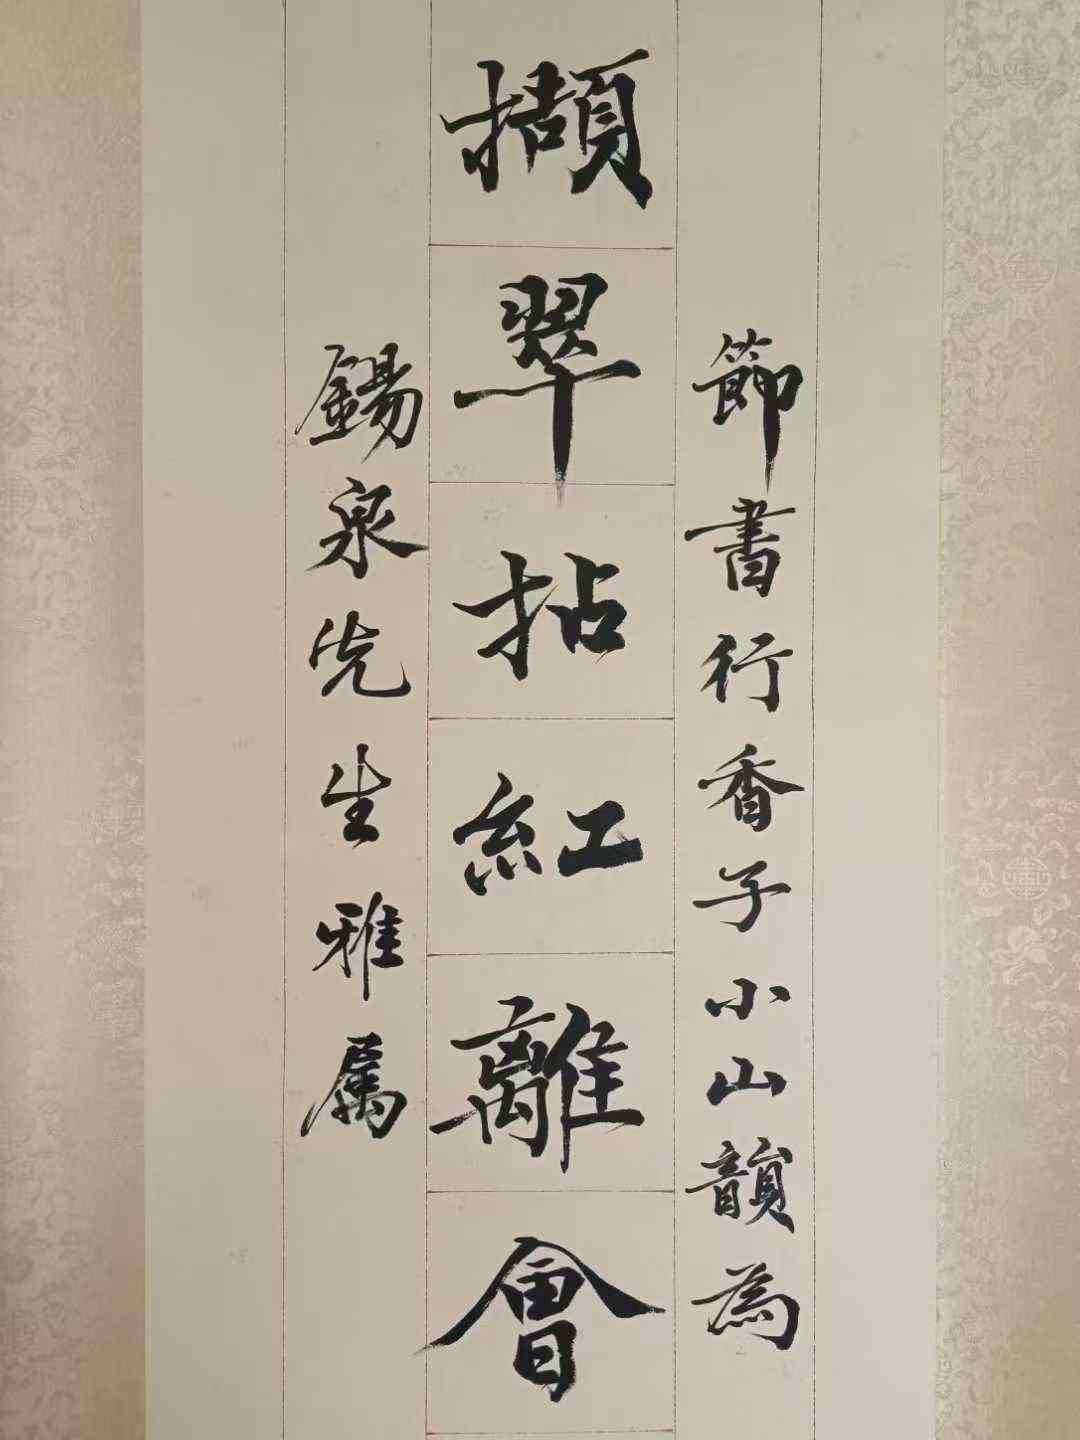 節書行香子小山韻為
擷翠拈紅離會
錫泉先生雅属